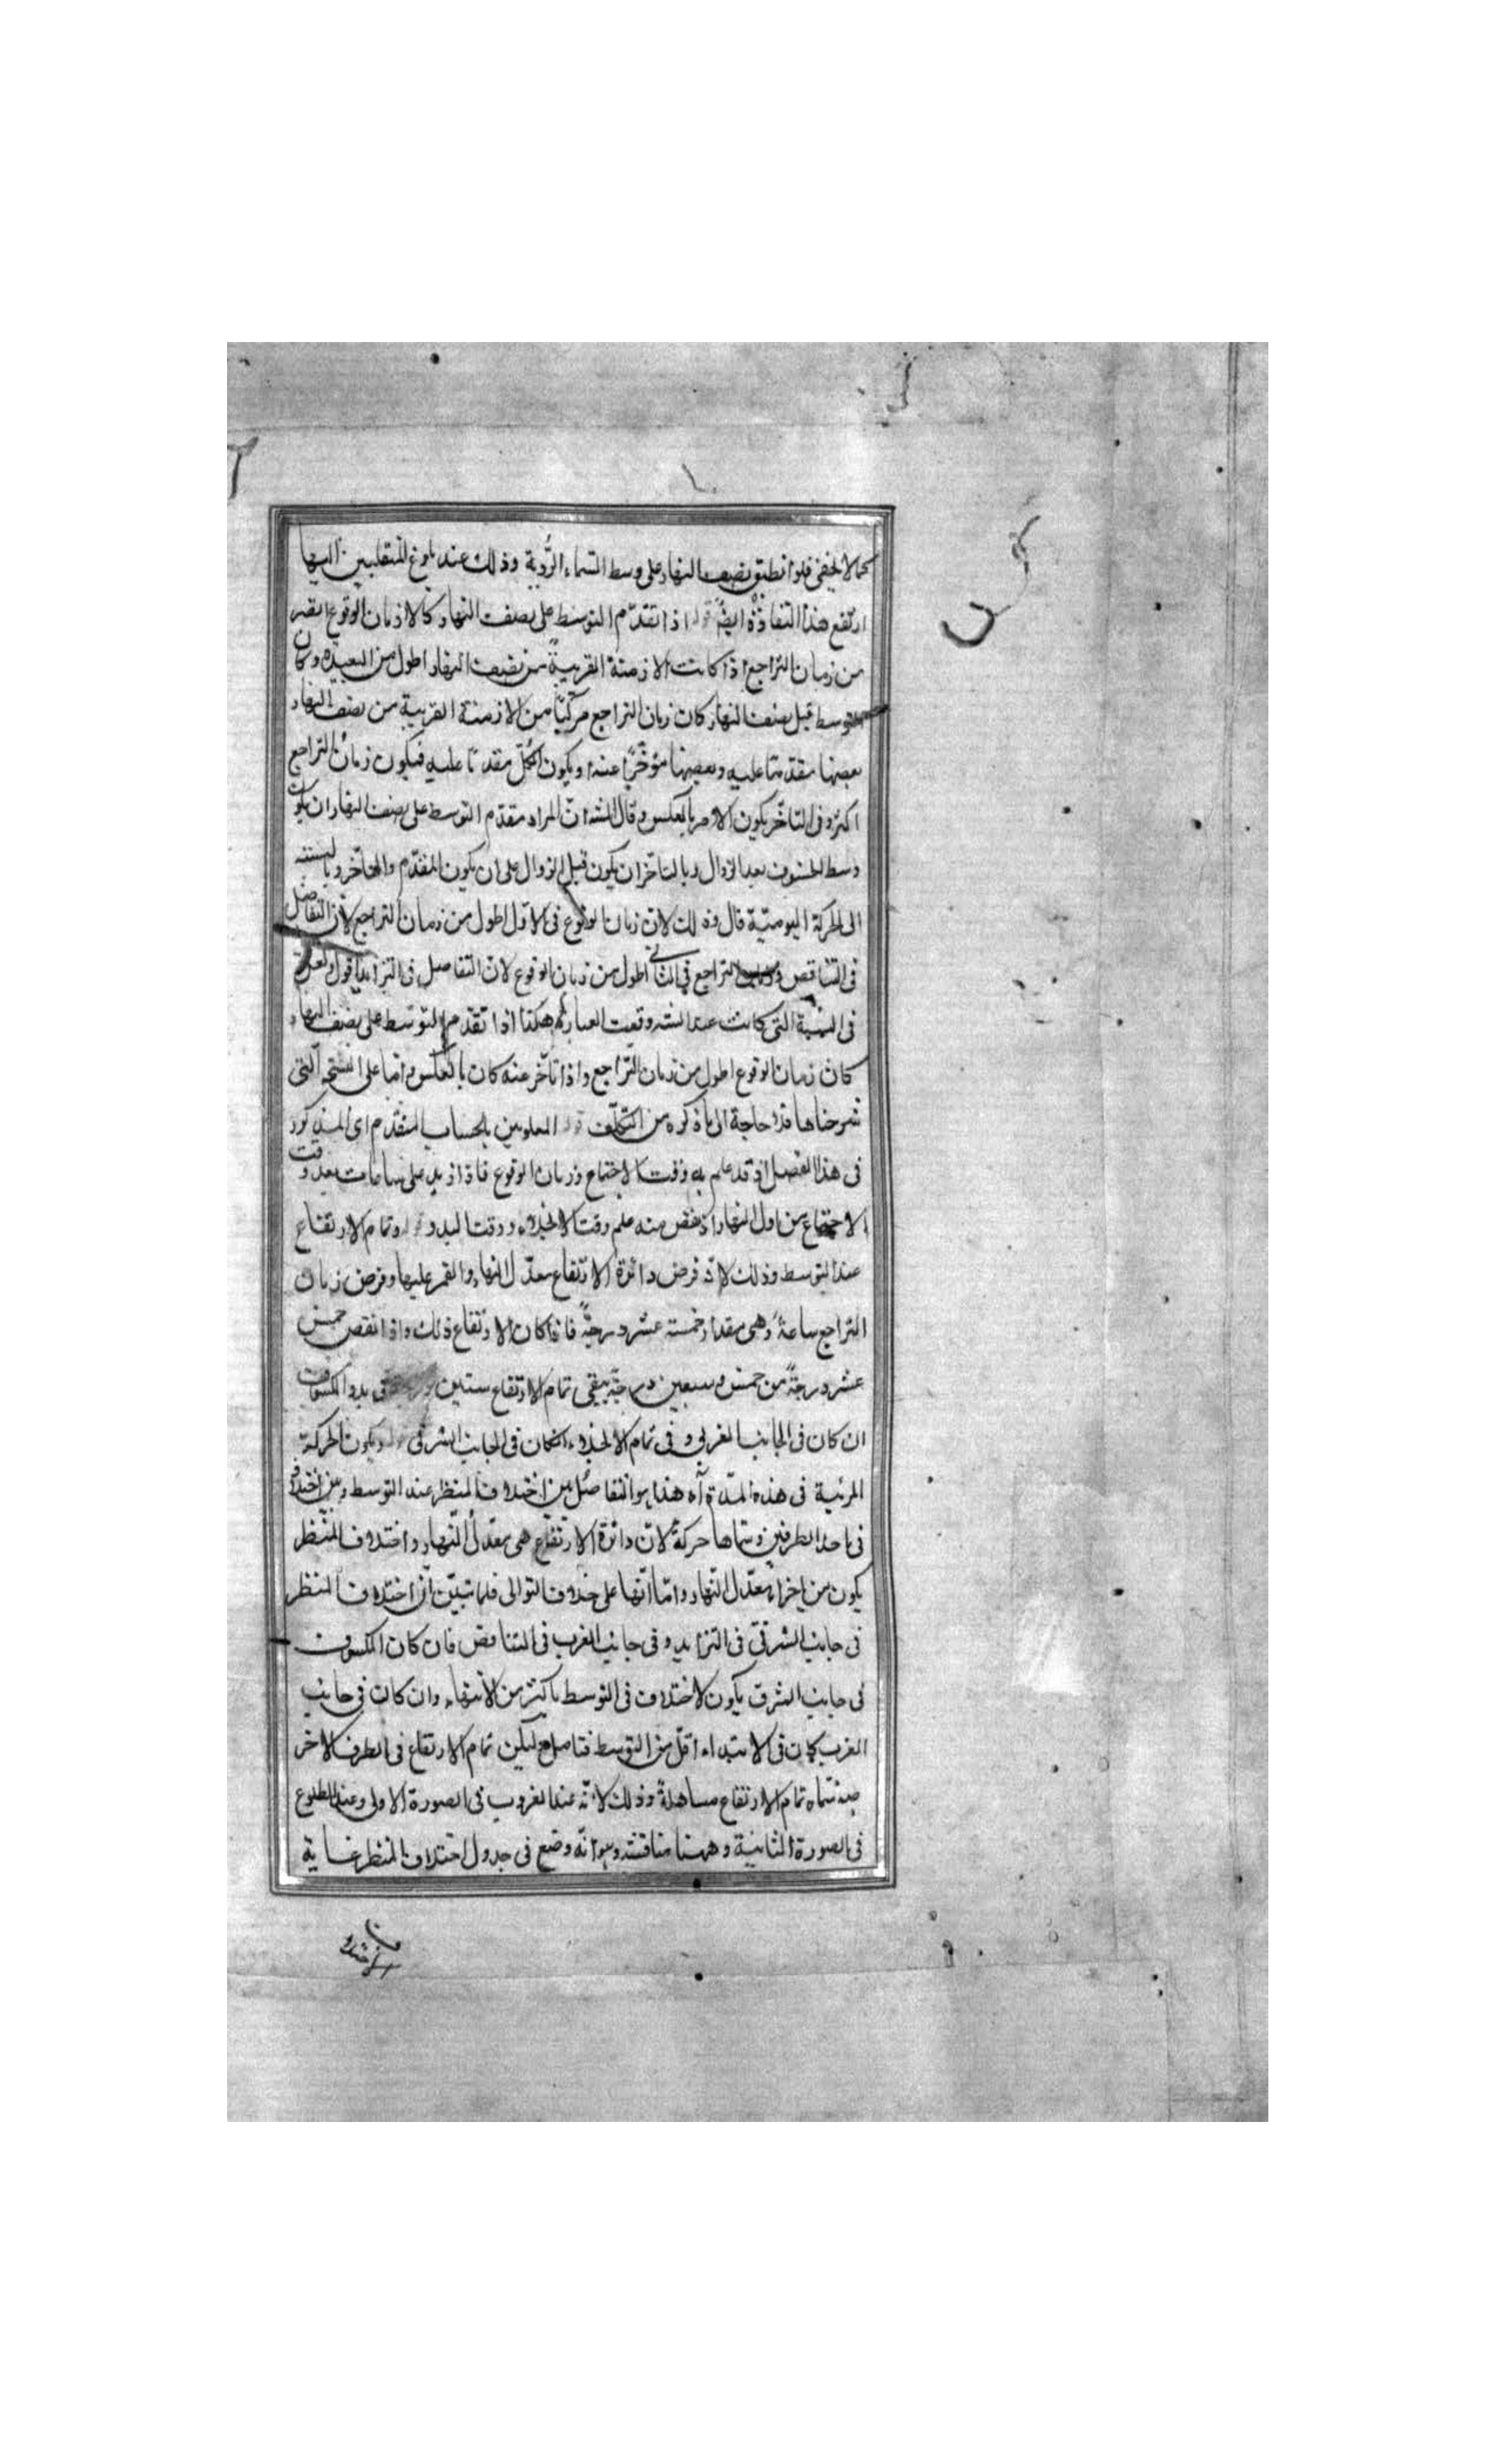 كما لا يخفى فلو انطبق نصف النهار على وسط السماء الرؤية وذلك عند بلوغ المنقلبين اليها
ارتفع هذا التفاوت ايضا قوله اذا تقدم التوسط على نصف النهار كالازمان الوقوع اقصر
من زمان التراجع اذا كانت الازمنة القريبة من نصف النهار اطول من البعيدة وكان
التوسط قبل نصف النهار كان زمان التراجع مركبا من الازمنة القريبة من نصف النهار
بعضها مقدما عليه وبعضها مؤخرا عنه او يكون الكل مقدما عليه فيكون زمان التراجع
اكثر وفى التأخر يكون الامر بالعكس وقال الشه ان المراد بتقدم التوسط على نصف النهار ان يكون
وسط الخسوف بعد الزوال وبالتاخر ان يكون قبل الزوال على ان يكون المقدم والتأخر وبالنسبة
الى الحركة اليومية قال وذلك لان زمان الوقوع فى الاول اطول من زمان التراجع لان التفاضل
فى التناقص وزمان التراجع فى الثانى اطول من زمان الوقوع لان التفاضل فى التزايد اقول ولعل
فى النسخة التى كانت عند الشه وقعت العبارة هكذا اذا تقدم التوسط على نصف النهار
كان زمان الوقوع اطول من زمان التراجع واذا تأخر عنه كان بالعكس واما على النسخة التى
شرحناها فلا حاجة الى ما ذكره من التكلف قوله المعلومين بالحساب المتقدم اى المذكور
فى هذا الفصل اذ قد علم به وقت الاجتماع وزمان الوقوع فاذا زيد على ساعات بعد وقت
الاجتماع من اول النهار او نقص منه علم وقت الانجلاء ووقت البدو قوله وتمام الارتفاع
عند التوسط وذلك لانه فرض دائرة الارتفاع معدل النهار والقمر عليها وفرض زمان
التراجع ساعة وهى مقدار خمسة عشر درجة فاذا كان الارتفاع ذلك واذا نقص خمس
عشر درجة من خمس وسبعين درجة يبقى تمام الارتفاع ستين درجة فى بدو الكسوف
ان كان فى الجانب الغربى وفى تمام الانجلاء ان كان فى الجانب الشرقى قوله ويكون الحركة
المرئية فى هذه المدة آه هذا هو التفاضل بين اختلاف المنظر عند التوسط وبين اختلافه
فى احد الطرفين وسماها حركة لان دائرة الارتفاع هى معدل النهار واختلاف المنظر
يكون من اجزاء معدل النهار واما انها على خلاف التوالى فلما تبين ان اختلاف المنظر
فى جانب الشرق فى التزايد وفى جانب المغرب فى التناقص فان كان الكسوف
فى جانب الشرق يكون الاختلاف فى التوسط باكثر من الانتهاء وان كان فى جانب
الغرب كان فى الابتداء اقل من التوسط فتامل قوله ليكن تمام الارتفاع فى الطرف الاخر
تمام الارتفاع مساهلة وذلك لانه عند الغروب فى الصورة الاولى وعند الطلوع
فى الصورة الثانية وههنا مناقشة وهو انه وضع فى جدول اختلاف المنظر غاية
الاختلاف